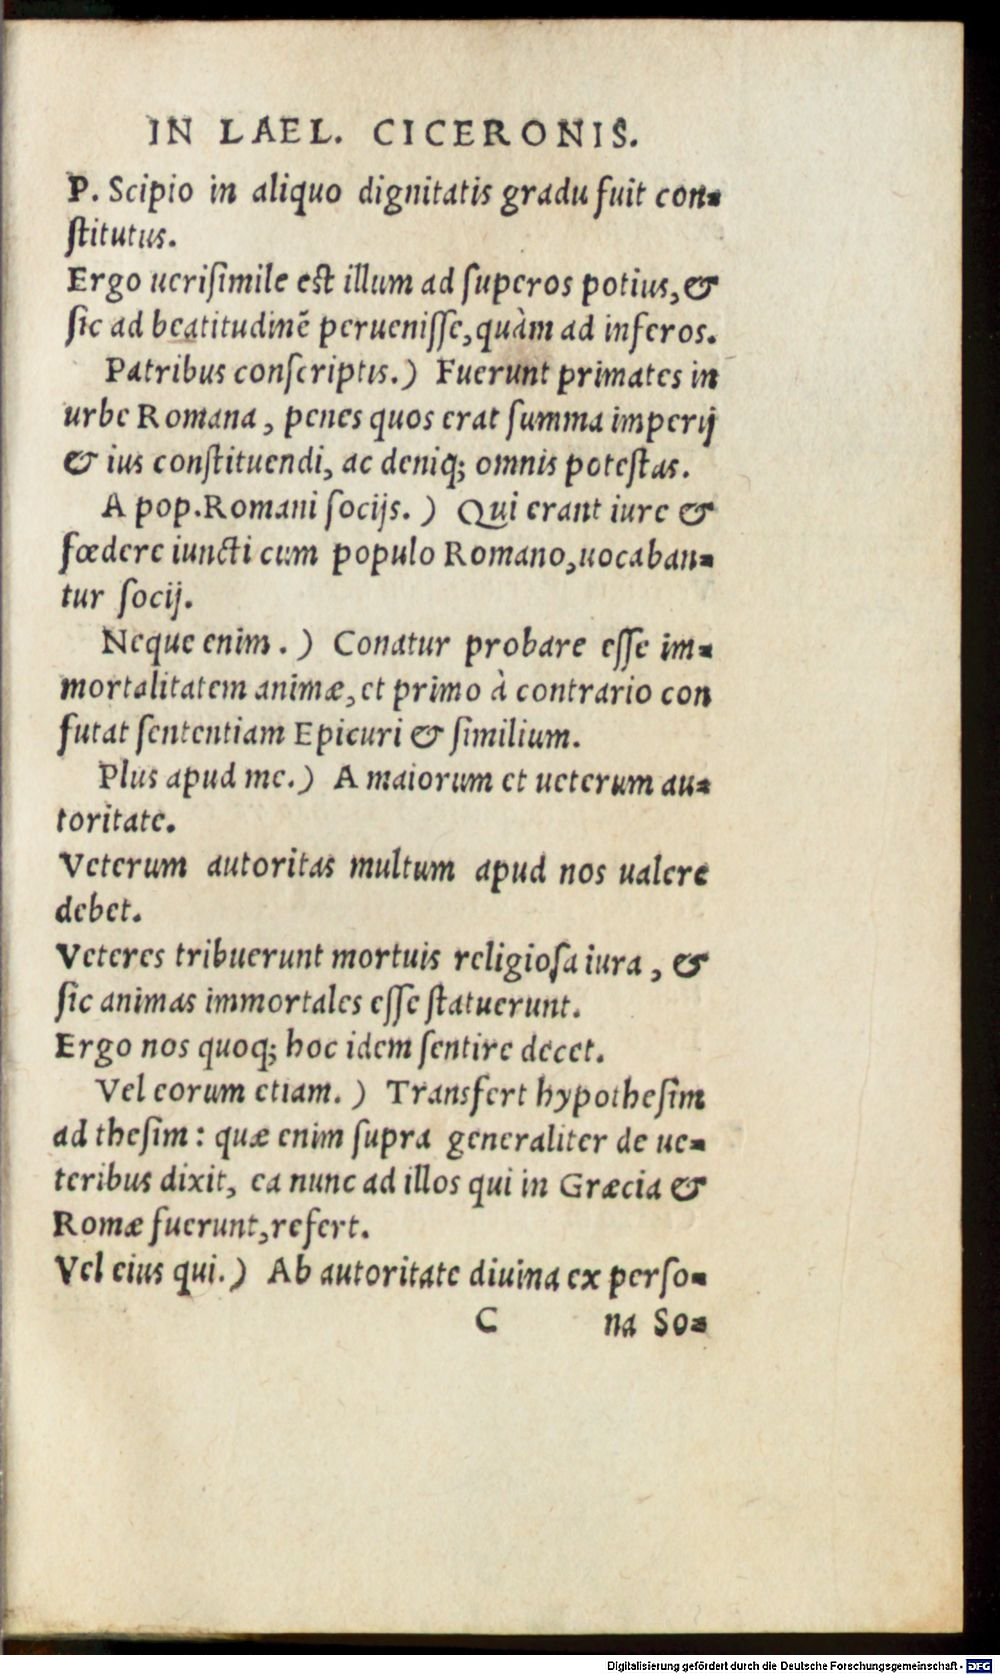 IN LAEL. CICERONIS.
P. Scipio in aliquo dignitatis gradu fuit con-
ſtitutus.
Ergo ueriſimile est illum ad ſuperos potius, &
ſic ad beatitudinē perueniſſe, quàm ad inferos.
Patribus conſcriptis.) Fuerunt primates in
urbe Romana, penes quos erat ſumma imperij
& ius conſtituendi, ac deniq; omnis poteſtas.
A pop. Romani ſocijs.) Qui erant iure &
fœdere iuncti cum populo Romano, uocaban-
tur ſocij.
Neque enim.) Conatur probare eſſe im-
mortalitatem animæ, et primo à contrario con
futat ſententiam Epicuri & ſimilium.
Plus apud me.) A maiorum et ueterum au-
toritate.
Veterum autoritas multum apud nos ualere
debet.
Veteres tribuerunt mortuis religioſa iura, &
ſic animas immortales eſſe ſtatuerunt.
Ergo nos quoq; hoc idem ſentire decet.
Vel eorum etiam.) Transfert hypotheſim
ad theſim: quæ enim ſupra generaliter de ue-
teribus dixit, ea nunc ad illos qui in Græcia &
Romæ fuerunt, refert.
Vel eius qui.) Ab autoritate diuina ex perſo-
C na So-
Digitalisierung gefördert durch die Deutsche Forschungsgemeinschaft - DFG